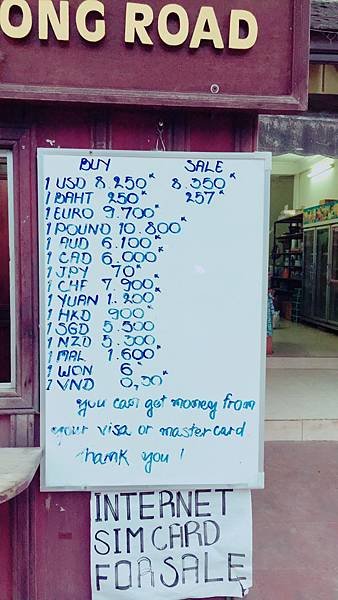 ONG ROAD
BUY SALE
1 USD 8.250K 8.350K
1 BAHT 250K 257K
1 EURO 9.700K
1 POUND 10.800K
1 AUD 6.100K
1 CAD 6.000K
1 JPY 70K
1 CHF 7.900K
1 YUAN 1.200K
1 HKD 900K
1 SGD 5.500
1 NZD 5.300K
1 MAL 1.600K
1 WON 6K
1 VND 0,30K
you can get money from
your visa or master card
thank you !
INTERNET
SIM CARD
FOR SALE